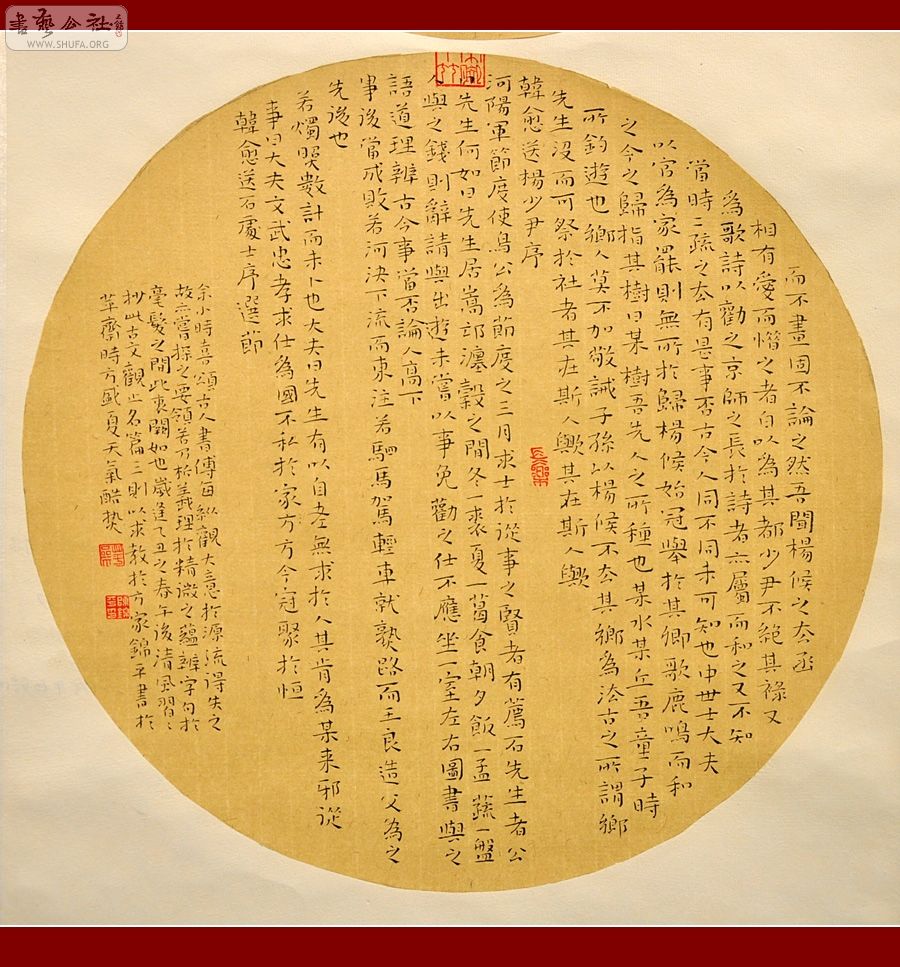 書藝公社
WWW.SHUFA.ORG
而不畫固不論之然吾聞楊候之去丞
相有愛而惜之者白以為其都少尹不絕其祿又
為歌詩以勸之京師之長於詩者亦屬而和之又不知
當時二疏之去有是事否古今人同不同未可知也中世士大夫
以官為家罷則無所於歸楊候始冠舉於其鄉歌鹿鳴而和
之今之歸指其樹曰某樹吾先人之所種也某水某丘吾童子時
所釣遊也鄉人莫不加敬誡子孫以楊候不去其鄉為法古之所謂鄉
先生沒而可祭於社者其在斯人歟其在斯人歟
韓愈送楊少尹序
河陽軍節度使烏公為節度之三月求士於從事之賢者有薦石先生者公
曰先生何如曰先生居嵩邙瀍穀之間冬一裘夏一葛食朝夕飯一盂蔬一盤
人與之錢則辭請與出遊未嘗以事免勸之仕不應坐一室左右圖書與之
語道理辨古今事當否論人高下
事後當成敗若河決下流而東注若駟馬駕輕車就熟路而王良造父為之
先後也
若燭照數計而未卜也大夫曰先生有以自老無求於人其肯為某来邪從
事曰大夫文武忠孝求仕為國不私於家方今寇聚於恒
韓愈送石處士序選節
余小時喜頌古人書傳每縱觀大意於源流得失之
故亦嘗探之要領若乃於義理於精微之蘊辨字句於
毫髮之間此衷闕如也歲逢乙丑之春午後清風習習
抄此古文觀止名篇三則以求教於方家錦平書於
草齋時方盛夏天氣酷熱